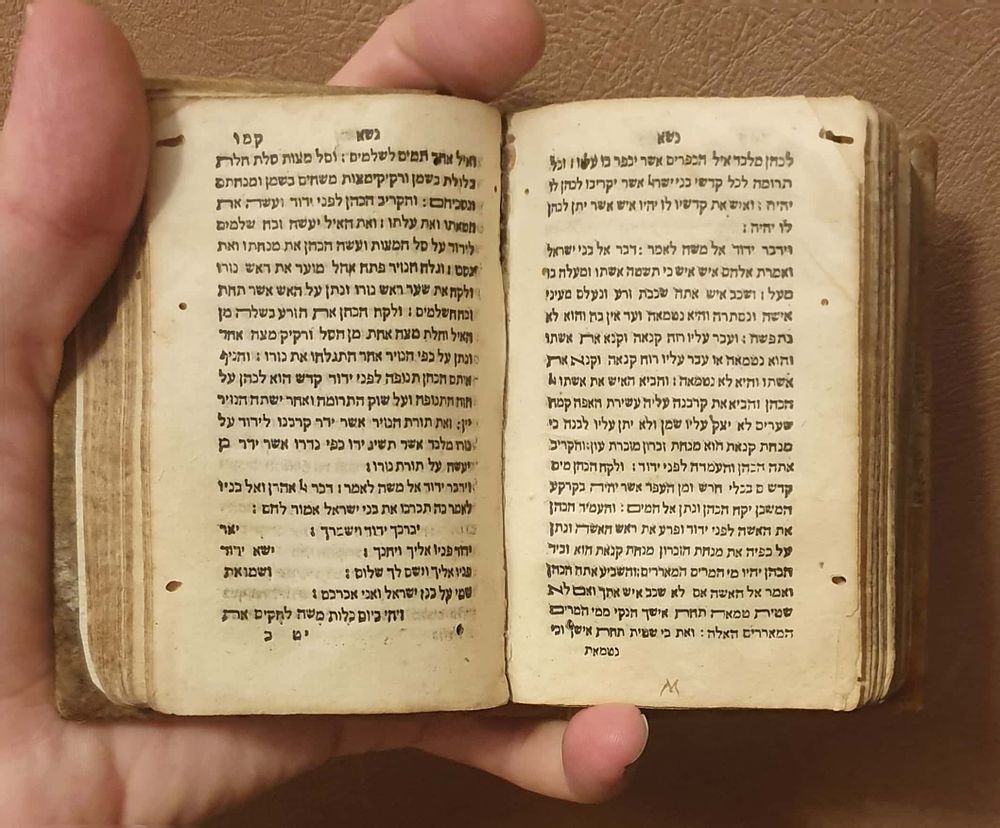 נשא
לכהן מלבד איל הכפרים אשר יכפר בו עליו : וכל
תרומה לכל קדשי בני ישרא אשר יקריבו לכהן לו
יהיה : ואיש את קדשיו לו יהיו איש אשר יתן לכהן
לו יהיה :
וידבר ידוד אל משה לאמר : דבר אל בני ישראל
ואמרת אלהם איש איש כי תשטה אשתו ומעלה בו
מעל : ושכב איש אתה שכבת זרע ונעלם מעיני
אישה ונסתרה והיא נטמאה ועד אין בה והוא לא
נתפשה : ועבר עליו רוח קנאה וקנא את אשתו
והוא נטמאה או עבר עליו רוח קנאה וקנא את
אשתו והיא לא נטמאה : והביא האיש את אשתו
הכהן והביא את קרבנה עליה עשירת האפה קמח
שערים לא יצק עליו שמן ולא יתן עליו לבנה כי
מנחת קנאת הוא מנחת זכרון מזכרת עון : והקריב
אתה הכהן והעמדה לפני ידוד : ולקח הכהן מים
קדשים בכלי חרש ומן העפר אשר יהיה בקרקע
המשכן יקח הכהן ונתן אל המים : והעמיד הכהן
את האשה לפני ידוד ופרע את ראש האשה ונתן
על כפיה את מנחת הזכרון מנחת קנאת הוא וביד
הכהן יהיו מי המרים המאררים : והשביע אתה הכהן
ואמר אל האשה אם לא שכב איש אתך ואם לא
שטית טמאה תחת אישך הנקי ממי המרים
המאררים האלה : ואת כי שטית תחת אישך וכי
נטמאת
נשא קמו
ואיל אחד תמים לשלמים : וסל מצות סלת חלת
בלולת בשמן ורקיקי מצות משחים בשמן ומנחתם
ונסכיהם : והקריב הכהן לפני ידוד ועשה את
חטאתו ואת עלתו : ואת האיל יעשה זבח שלמים
לידוד על סל המצות ועשה הכהן את מנחתו ואת
נסכו : וגלח הנזיר פתח אהל מועד את ראש נזרו
ולקח את שער ראש נזרו ונתן על האש אשר תחת
זבח השלמים : ולקח הכהן את הזרע בשלה מן
האיל וחלת מצה אחת מן הסל ורקיק מצה אחד
ונתן על כפי הנזיר אחר התגלחו את נזרו : והניף
אותם הכהן תנופה לפני ידוד קדש הוא לכהן על
חזה התנופה ועל שוק התרומה ואחר ישתה הנזיר
יין : זאת תורת הנזיר אשר ידר קרבנו לידוד על
נזרו מלבד אשר תשיג ידו כפי נדרו אשר ידר כן
יעשה על תורת נזרו :
וידבר ידוד אל משה לאמר : דבר אל אהרן ואל בניו
לאמר כה תברכו את בני ישראל אמור להם :
יברכך ידוד וישמרך : יאר
ידוד פניו אליך ויחנך : ישא ידוד
פניו אליך וישם לך שלום : ושמו את
שמי על בני ישראל ואני אברכם :
ויהי ביום כלות משה להקים את
יט ב